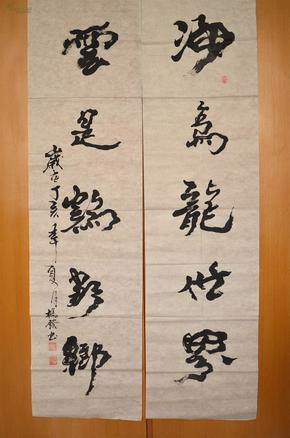 海為龍世界
雲是鶴故鄉
歲在丁亥年夏月書